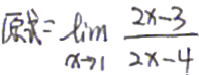 原式= lim x→1 (2x-3)/(2x-4)